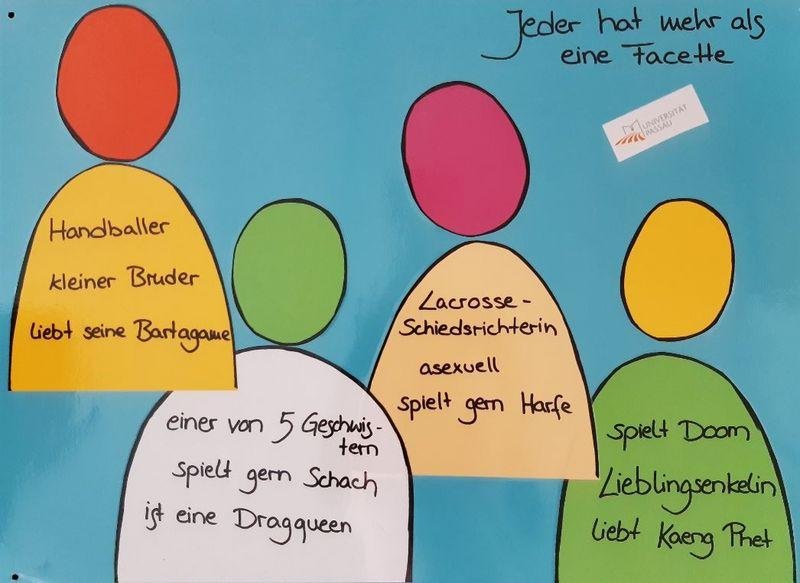 Jeder hat mehr als
eine Facette
UNIVERSITÄT
PASSAU
Handballer
kleiner Bruder
liebt seine Bartagame
einer von 5 Geschwis-
tern
spielt gern Schach
ist eine Dragqueen
Lacrosse-
Schiedsrichterin
asexuell
spielt gern Harfe
spielt Doom
Lieblingsenkelin
liebt Kaeng Phet